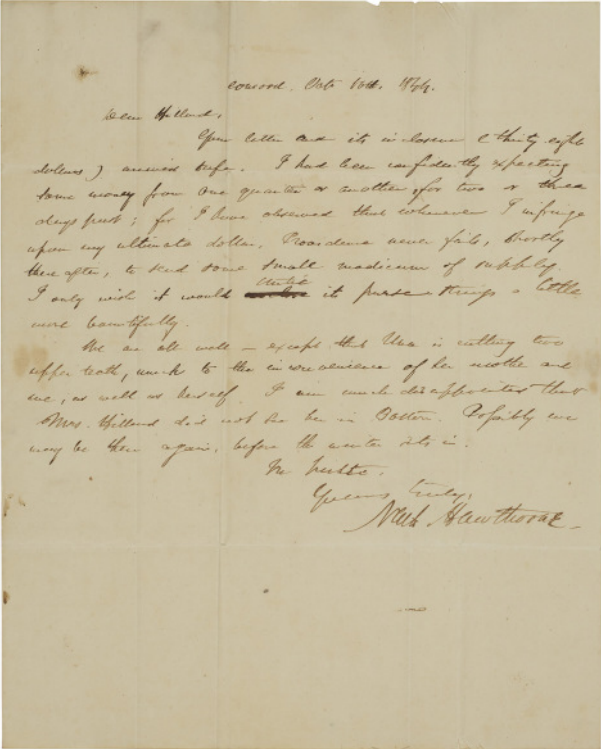 Concord. Octr 10th, 1844.
Dear Hillard,
Your letter and its inclosure (thirty-eight
dollars) arrived safe. I had been confidently expecting
some money from one quarter or another, for two or three
days past; for I have observed that whenever I infringe
upon my ultimate dollar, Providence never fails, shortly
thereafter, to send some small modicum of supply.
Untie
I only wish it would its purse-strings a little
more bountifully.
We are all well — except that Una is cutting two
upper teeth, much to the inconvenience of her mother and
me, as well as herself. I am much disappointed that
Mrs. Hillard did not see her in Boston. Possibly we
may be there again, before the winter sets in.
In haste.
Yours truly,
Nath Hawthorne